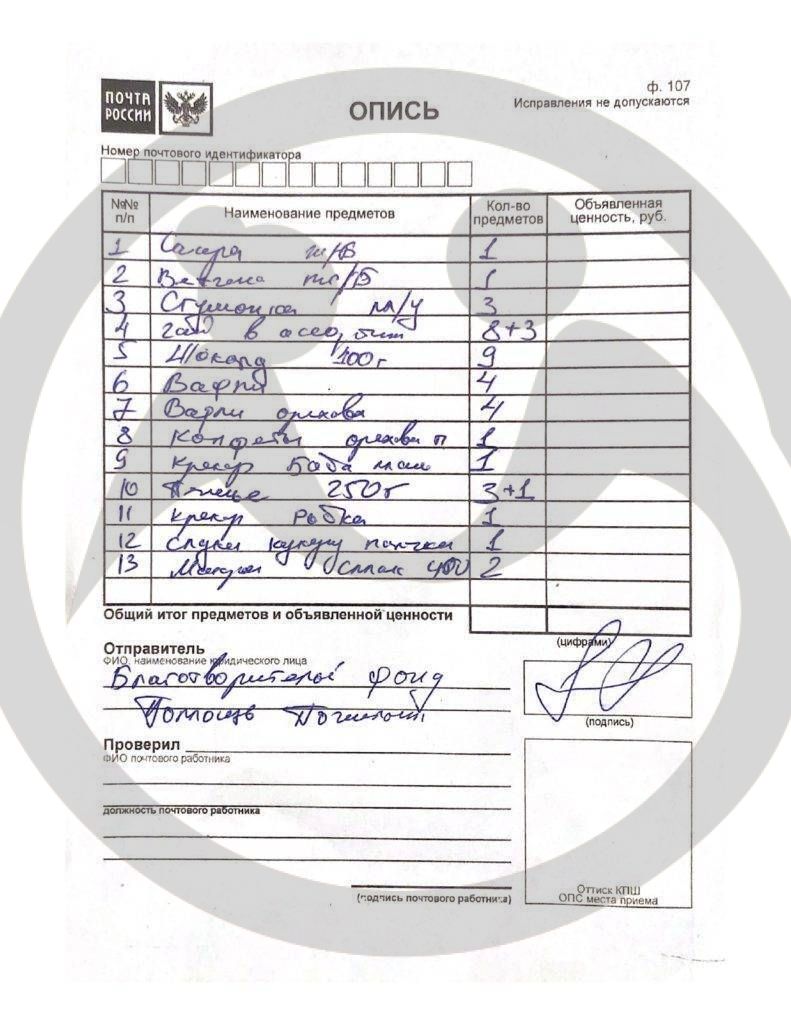 ПОЧТА
РОССИИ
ОПИСЬ
ф. 107
Исправления не допускаются
Номер почтового идентификатора
№№ п/п Наименование предметов Кол-во предметов Объявленная ценность, руб.
1 ж/б 1
2 Ветчина ж/б 1
3 м/у 3
4 в 8+3
5 Шоколад 100г 9
6 Вафли 4
7 Вафли орехова 4
8 Конфеты орехова п 1
9 Крекер Баба 1
10 Печенье 250г 3+1
11 Крекер Рыбка 1
12 кукуру палочки 1
13 400 2
Общий итог предметов и объявленной ценности
(цифрами)
Отправитель
ФИО, наименование юридического лица
Благотворительный фонд
Помощь
(подпись)
Проверил
ФИО почтового работника
должность почтового работника
(подпись почтового работника)
Оттиск КПШ
ОПС места приема